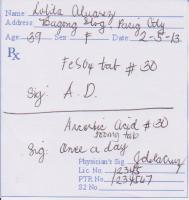 Name Lolita Alvarez
Address Bagong Ilog Pasig City
Age 39 Sex F Date 2-5-13
Rx
FeSO4 tab #30
Sig: A.D.
Ascorbic Acid #30
500mg tab
Sig: Once a day
Physician's Sig Jdelacruz
Lic No. 12345
PTR No. 1234567
S2 No